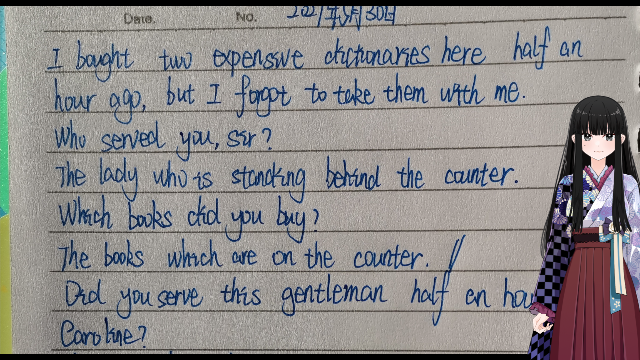 Date. No. 2021年5月30日
I bought two expensive dictionaries here half an
hour ago, but I forgot to take them with me.
Who served you, sir?
The lady who is standing behind the counter.
Which books did you buy?
The books which are on the counter.
Did you serve this gentleman half an hou
Caroline?